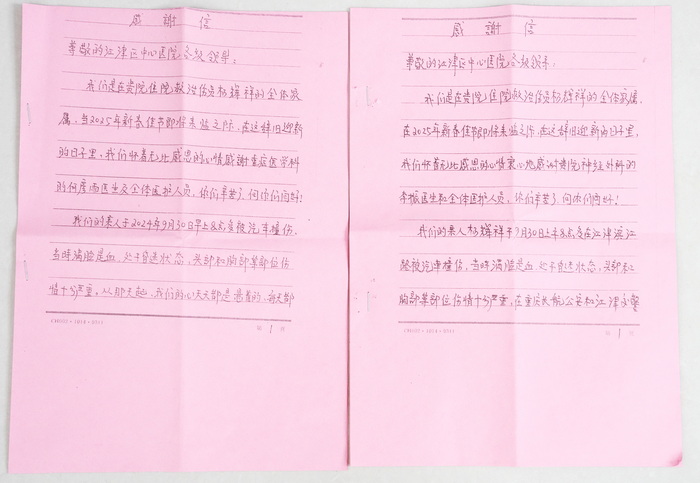 感謝信
尊敬的江津区中心医院各级领导:
我们是在贵院住院救治伤员杨辉祥的全体家
属,当2025年新春佳节即将来临之际,在这辞旧迎新
的日子里,我们怀着无比感恩的心情感谢重症医学科
的何度而医生及全体医护人员,你们辛苦了向你们问好!
我们的亲人于2024年9月30日早上8点多被汽车撞伤,
当时满脸是血,处于昏迷状态,头部和胸部某部位伤
情十分严重,从那天起,我们的心天天都是悬着的,每天都
第1页
感謝信
尊敬的江津区中心医院各级领导:
我们是在贵院住院救治伤员杨辉祥的全体家属,
在2025年新春佳节即将来临之际,在这辞旧迎新的日子里,
我们怀着无比感恩的心情衷心地感谢贵院神经外科的
李振医生和全体医护人员,你们辛苦了,向你们问好!
我们的亲人杨辉祥于9月30日上午8点多在江津滨江
路被汽车撞伤,当时满脸是血,处于昏迷状态,头部和
胸部某部位伤情十分严重,在重庆长航公安和江津交警
第1页